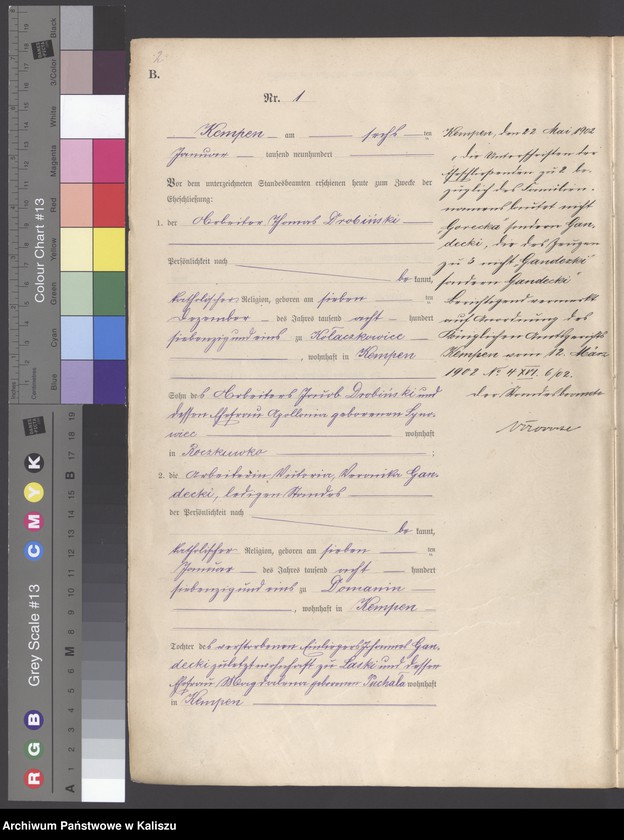 2
B.
Nr. 1
Kempen am sechs ten
Januar tausend neunhundert
Vor dem unterzeichneten Standesbeamten erschienen heute zum Zwecke der
Eheschließung:
1. der Arbeiter Thomas Drobiński
Persönlichkeit nach
be kannt,
katholischer Religion, geboren am sieben ten
Dezember des Jahres tausend acht hundert
siebenzig und eins zu Kołaczkowice
, wohnhaft in Kempen
Sohn des Arbeiters Jakob Drobiński und
dessen Ehefrau Apollonia geborenen
wohnhaft
in ;
2. die Arbeiterin, Viktoria, Veronika Gan-
decki, ledigen Standes
der Persönlichkeit nach
be kannt,
katholischer Religion, geboren am sieben ten
Januar des Jahres tausend acht hundert
siebenzig und eins zu Domanin
, wohnhaft in Kempen
Tochter des verstorbenen Einliegers Gan-
decki zuletzt wohnhaft zu Laski und dessen
Ehefrau Magdalena geborenen Puchala wohnhaft
in Kempen
Kempen, den 22. Mai 1902
Die Unterschriften der
Eheschließenden zu 2 be-
züglich des Familien-
namens lautet nicht
"Gorecka" sondern Gan-
decki, der des Zeugen
zu 3 nicht "Gandezki"
sondern "Gandecki"
berichtigend vermerkt
auf Anordnung des
Königlichen Amtsgerichts
Kempen vom 12. März
1902 No. 4 XVI. 6/02.
Der Standesbeamte
Colour Chart #13
Grey Scale #13
Blue
Cyan
Green
Yellow
Red
Magenta
White
3/Color
Black
Inches
Centimetres
R G B C M Y K
A 1 2 3 4 5 6 M 8 9 10 11 12 13 14 15 B 17 18 19
Archiwum Państwowe w Kaliszu